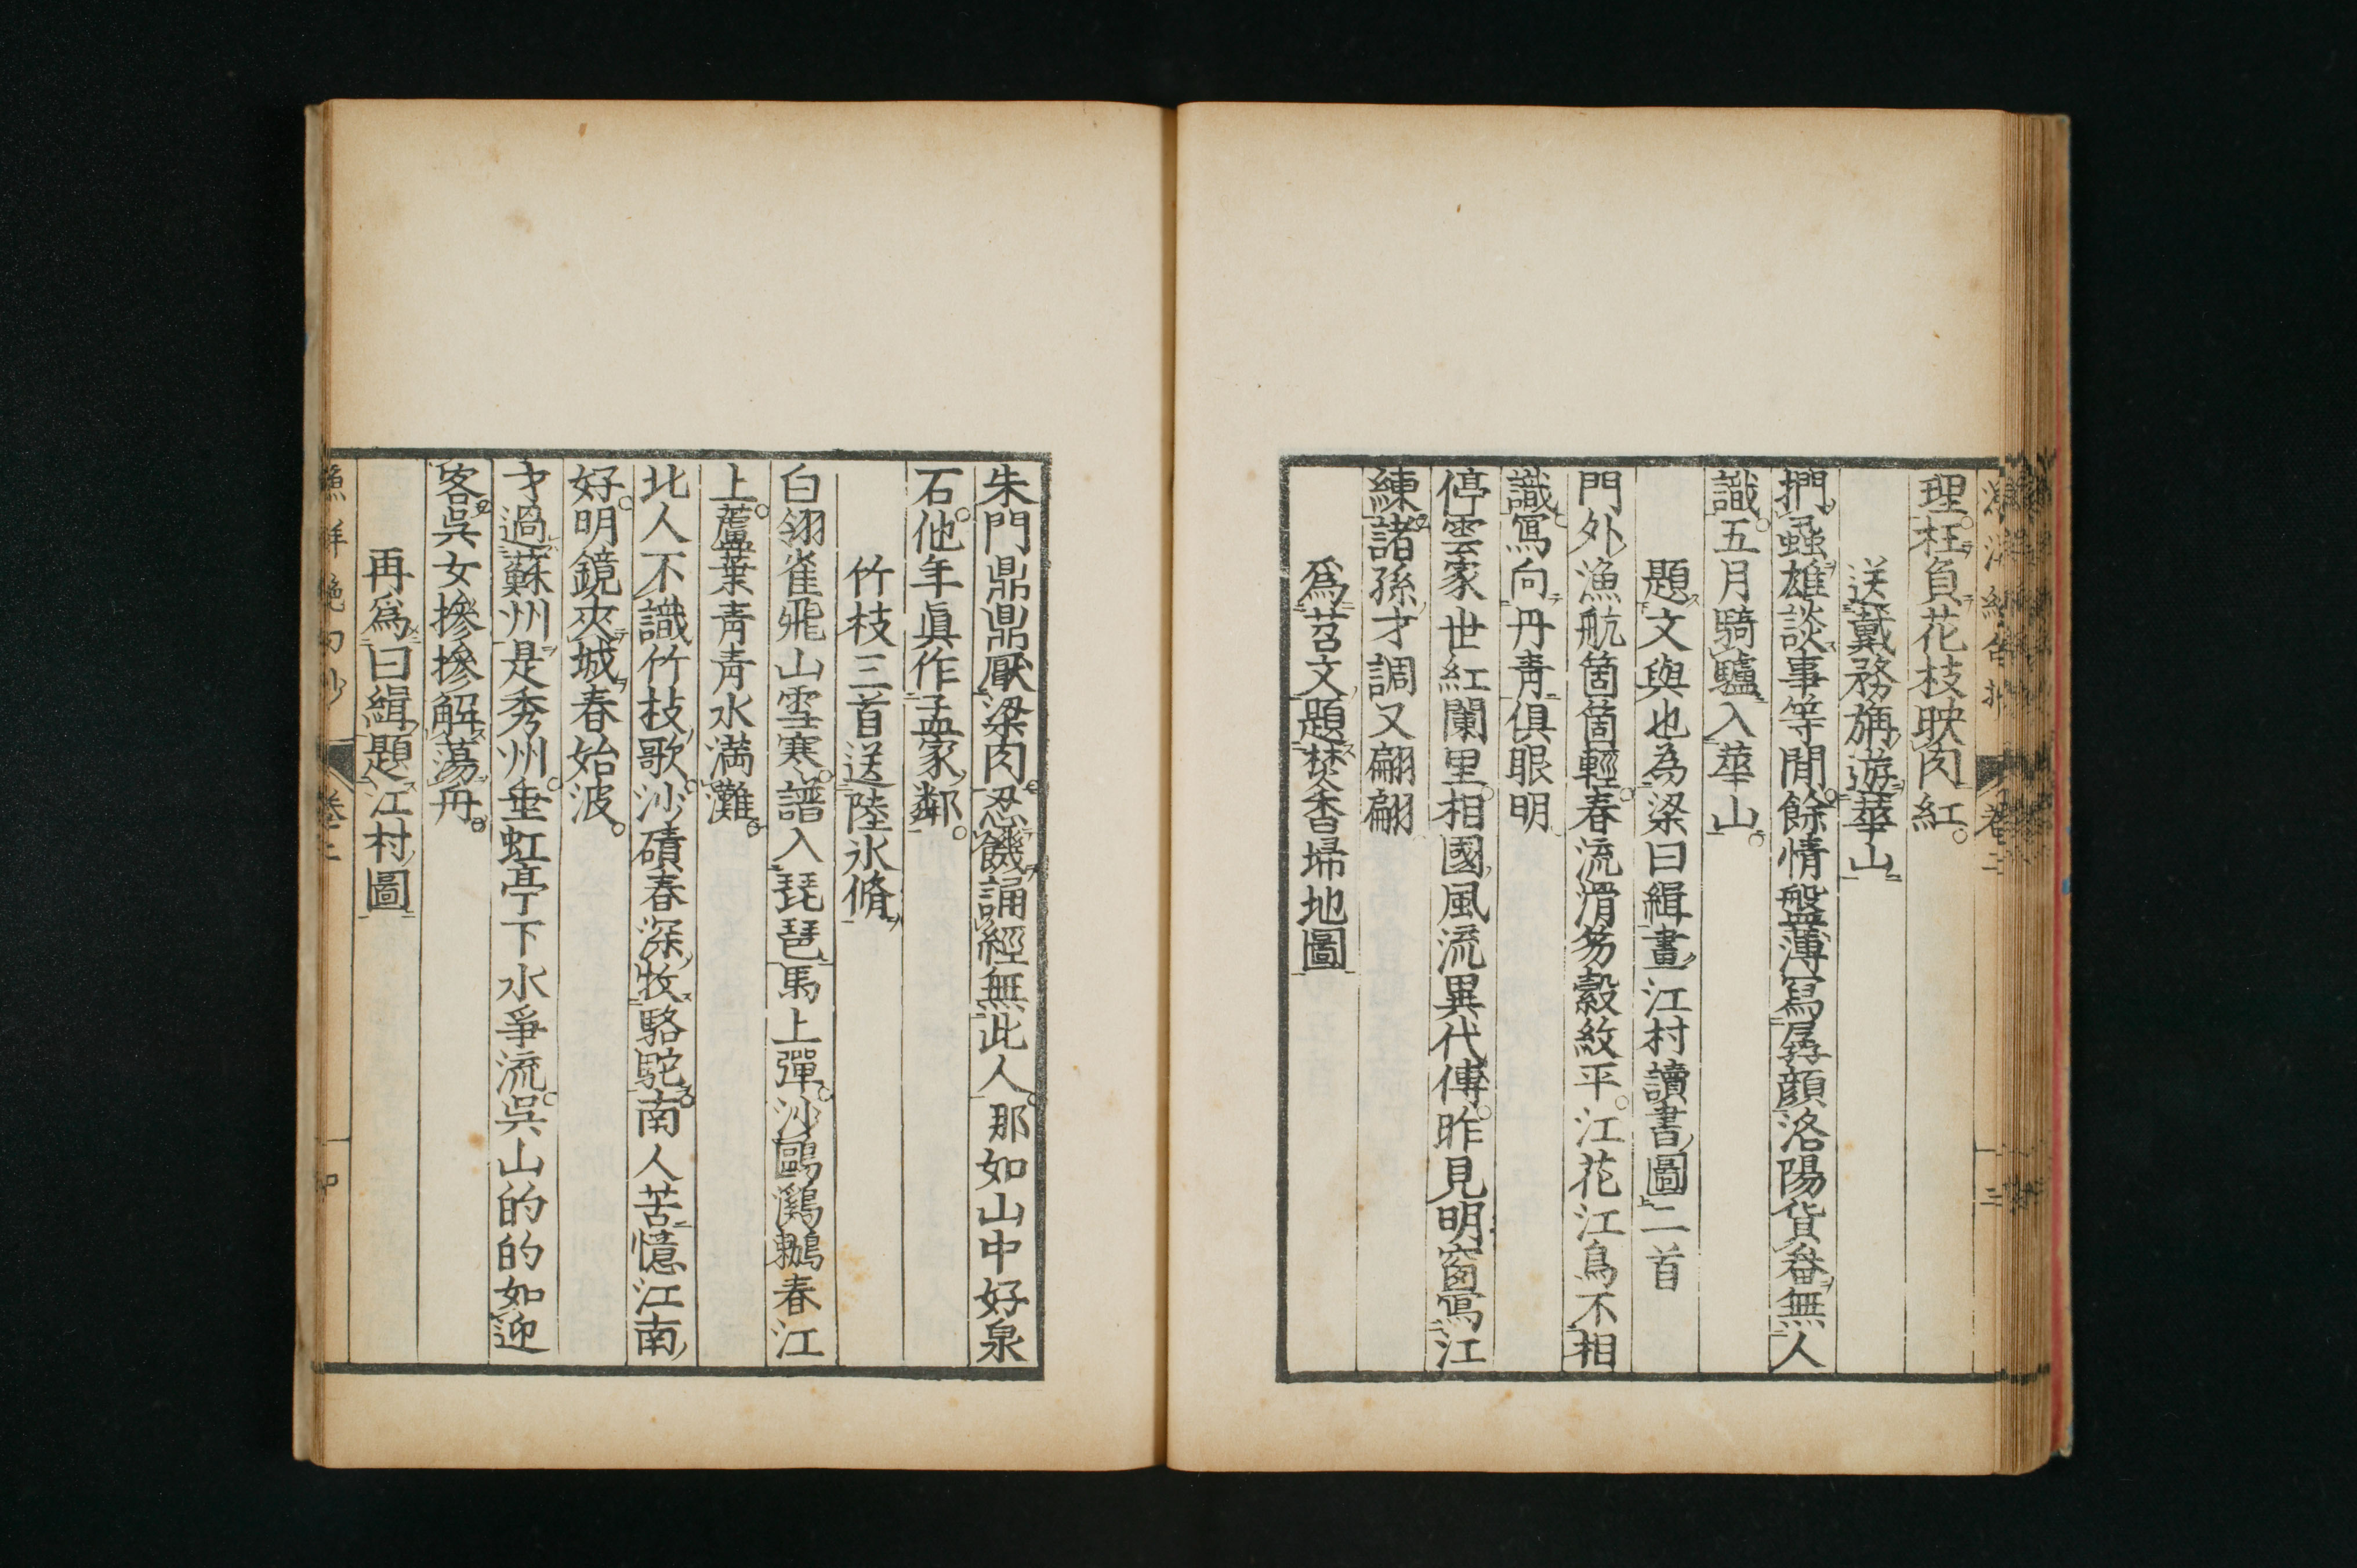 理枉負花枝映肉紅
送戴務旃遊華山
捫蝨雄談事等閒餘情盤薄寫孱顔洛陽貨畚無人
識五月騎驢入華山
題文與也為梁曰緝畫江村讀書圖二首
門外漁航箇箇輕春流滑笏縠紋平江花江鳥不相
識寫向丹青俱眼明
停雲家世紅闌里相國風流異代傳昨見明窗寫江
練諸孫才調又翩翩
爲苕文題焚香埽地圖
朱門鼎鼎厭梁肉忍饑誦經無此人那如山中好泉
石他年眞作孟家鄰
竹枝三首送陸氷脩
白翎雀飛山雪寒譜入琵琶馬上彈沙鷗鸂鶒春江
上蘆葉青青水満灘
北人不識竹枝歌沙磧春深牧駱駝南人苦憶江南
好明鏡夾城春始波
才過蘇州是秀州垂虹亭下水爭流吳山的的如迎
客吳女摻摻解蕩舟
再爲曰緝題江村圖
漁洋絶句抄
卷二